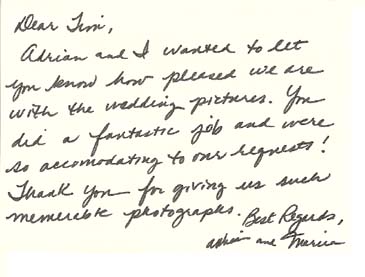 Dear Tim,
Adrian and I wanted to let
you know how pleased we are
with the wedding pictures. You
did a fantastic job and were
so accomodating to our requests!
Thank you for giving us such
memorable photographs.
Best Regards,
Adrian and Marcia